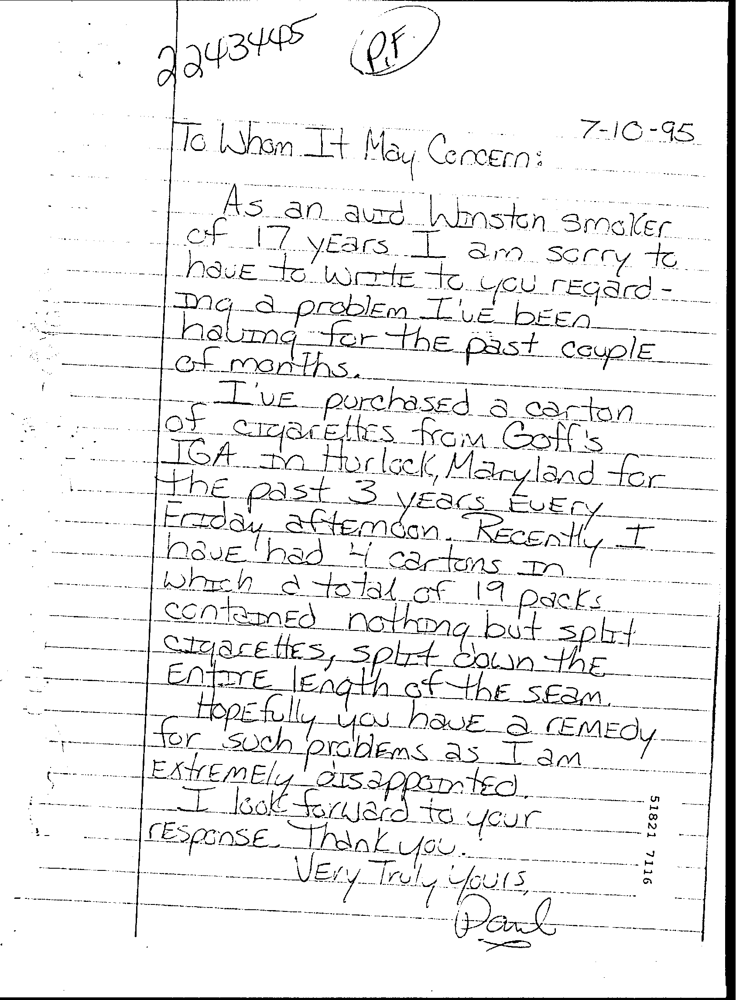 2243445 P.F
7-10-95
To Whom It May Concern:
As an avid Winston smoker
of 17 years I am sorry to
have to write to you regard-
ing a problem I've been
having for the past couple
of months.
I've purchased a carton
of cigarettes from Goff's
IGA in Hurlock, Maryland for
the past 3 years every
Friday afternoon. Recently I
have had 4 cartons in
which a total of 19 packs
contained nothing but split
cigarettes, split down the
entire length of the seam.
Hopefully you have a remedy
for such problems as I am
extremely disappointed.
I look forward to your
response. Thank you.
Very Truly Yours,
Paul
51821 7116